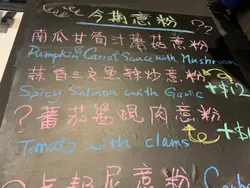 今揀意粉
??
南瓜甘筍汁蘑菇意粉
Pumpkin Carrot Sauce with Mushroom
蒜香三文魚辣炒意粉
+$12
Spicy Salmon with Garlic
?蕃茄醬蜆肉意粉
Tomato with clams
+$1
意粉